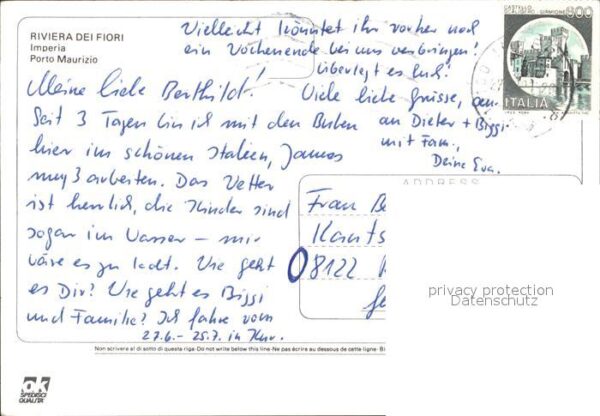 RIVIERA DEI FIORI
Imperia
Porto Maurizio
Meine liebe Berthild!
Seit 3 Tagen bin ich mit den Buben
hier im schönen Italien,
muß arbeiten. Das Wetter
ist herrlich, die Kinder sind
sogar im Wasser – mir
wäre es zu kalt. Wie geht
es Dir? Wie geht es Biggi
und Familie? Ich fahre vom
27.6. – 25.7. in Kur.
Vielleicht könntet ihr vorher noch
ein Wochenende bei uns verbringen!
Überlegt es Euch!
Viele liebe Grüsse, an
an Dieter + Biggi
mit Fam.,
Deine Eva.
CASTELLO
SCALIGERO - SIRMIONE
800
ITALIA
ADDRESS
Frau Be
08122
privacy protection
Datenschutz
Non scrivere al di sotto di questa riga - Do not write below this line - Ne pas écrire au dessous de cette ligne - Bi
ok
SPEDISCI
QUALITÀ